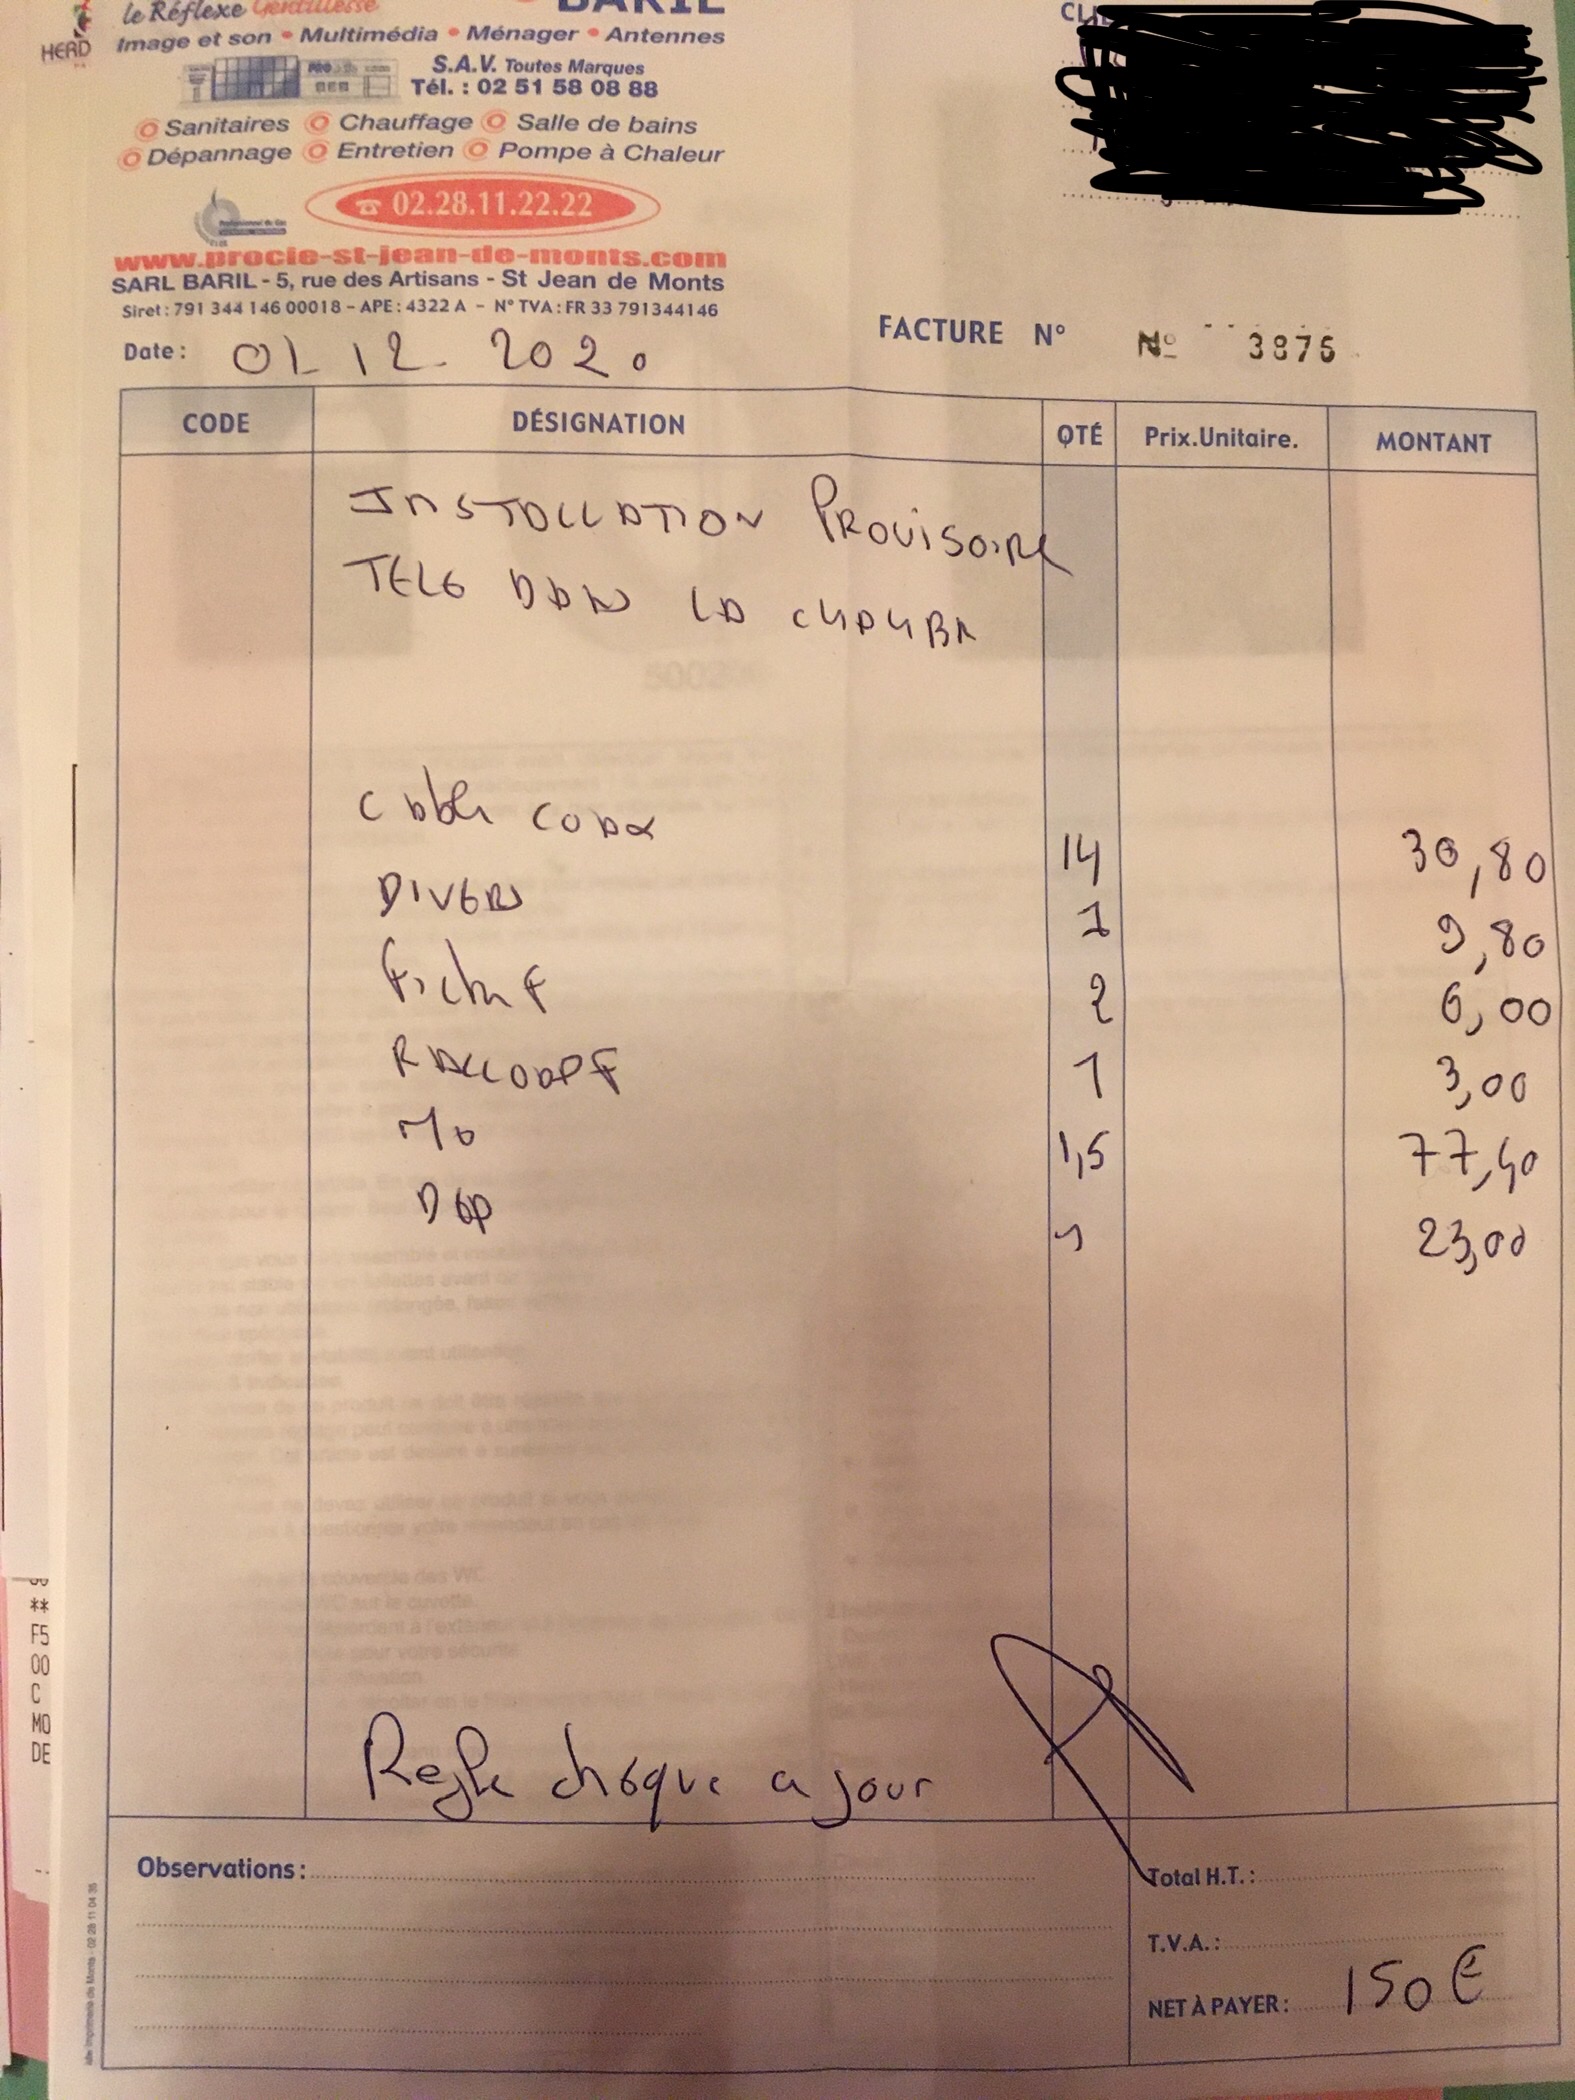 le Réflexe Gentillesse
BARIL
HERD
Image et son • Multimédia • Ménager • Antennes
S.A.V. Toutes Marques
Tél. : 02 51 58 08 88
Sanitaires Chauffage Salle de bains
Dépannage Entretien Pompe à Chaleur
☎ 02.28.11.22.22
www.procie-st-jean-de-monts.com
SARL BARIL - 5, rue des Artisans - St Jean de Monts
Siret : 791 344 146 00018 - APE : 4322 A - N° TVA : FR 33 791344146
Date : 01 12 2020
FACTURE N° Nº 3876
CODE DÉSIGNATION QTÉ Prix.Unitaire. MONTANT
INSTALLATION PROVISOIRE
TELE DAN LA CHAMBR
Cable COAX 14 30,80
DIVERS 1 9,80
Fiche F 2 6,00
RACCORD F 1 3,00
MO 1,5 77,40
DEP 1 23,00
Regle chèque a jour
Observations :
Total H.T. :
T.V.A. :
NET À PAYER : 150 €
Imprimerie de Monts - 02 28 11 04 35
**
F5
00
C
MO
DE